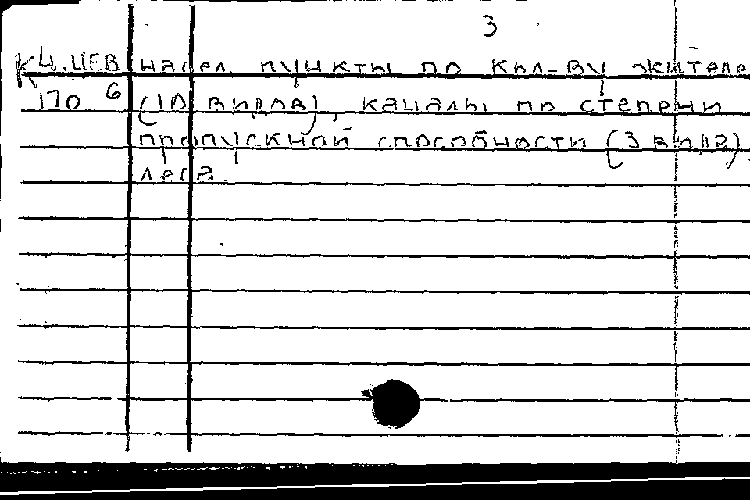 3
К Ц.ЦЕВ насел. пункты по кол-ву жителе
170 6 (10 видов), каналы по степени
пропускной способности (3 вида)
леса.